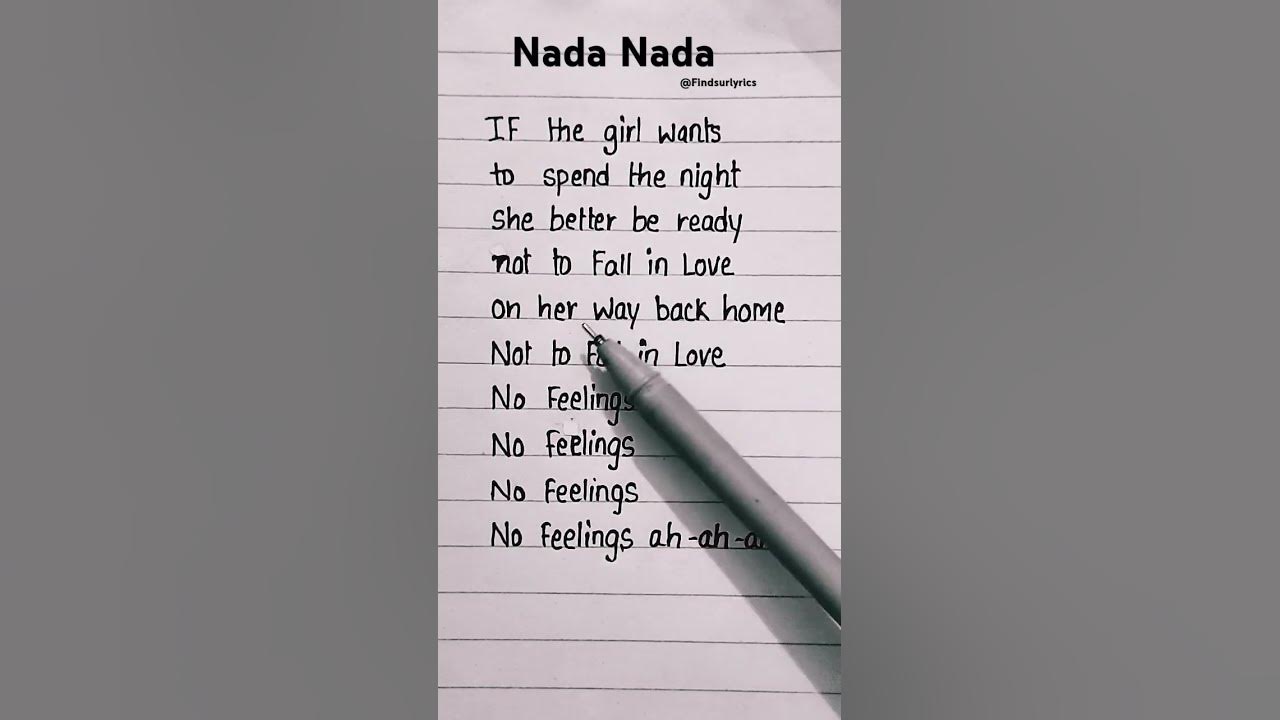 Nada Nada
@Findsurlyrics
IF the girl wants
to spend the night
she better be ready
not to Fall in Love
on her way back home
Not to Fall in Love
No Feelings
No Feelings
No Feelings
No Feelings ah-ah-